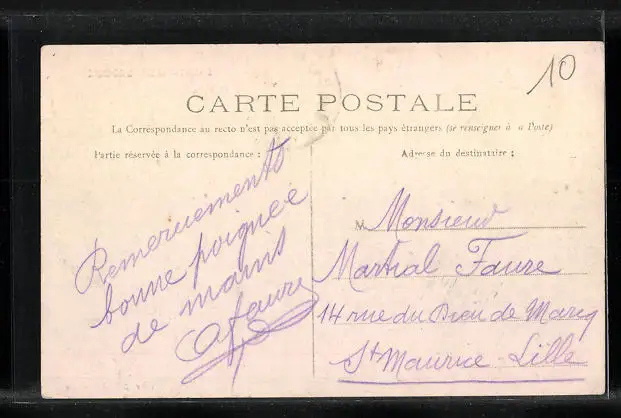 10
CARTE POSTALE
La Correspondance au recto n'est pas acceptée par tous les pays étrangers (se renseigner à la Poste)
Partie réservée à la correspondance :
Remerciements
bonne poignée
de mains
Faure
Adresse du destinataire :
M Monsieur
Martial Faure
14 rue du Dieu de Marcq
St Maurice - Lille